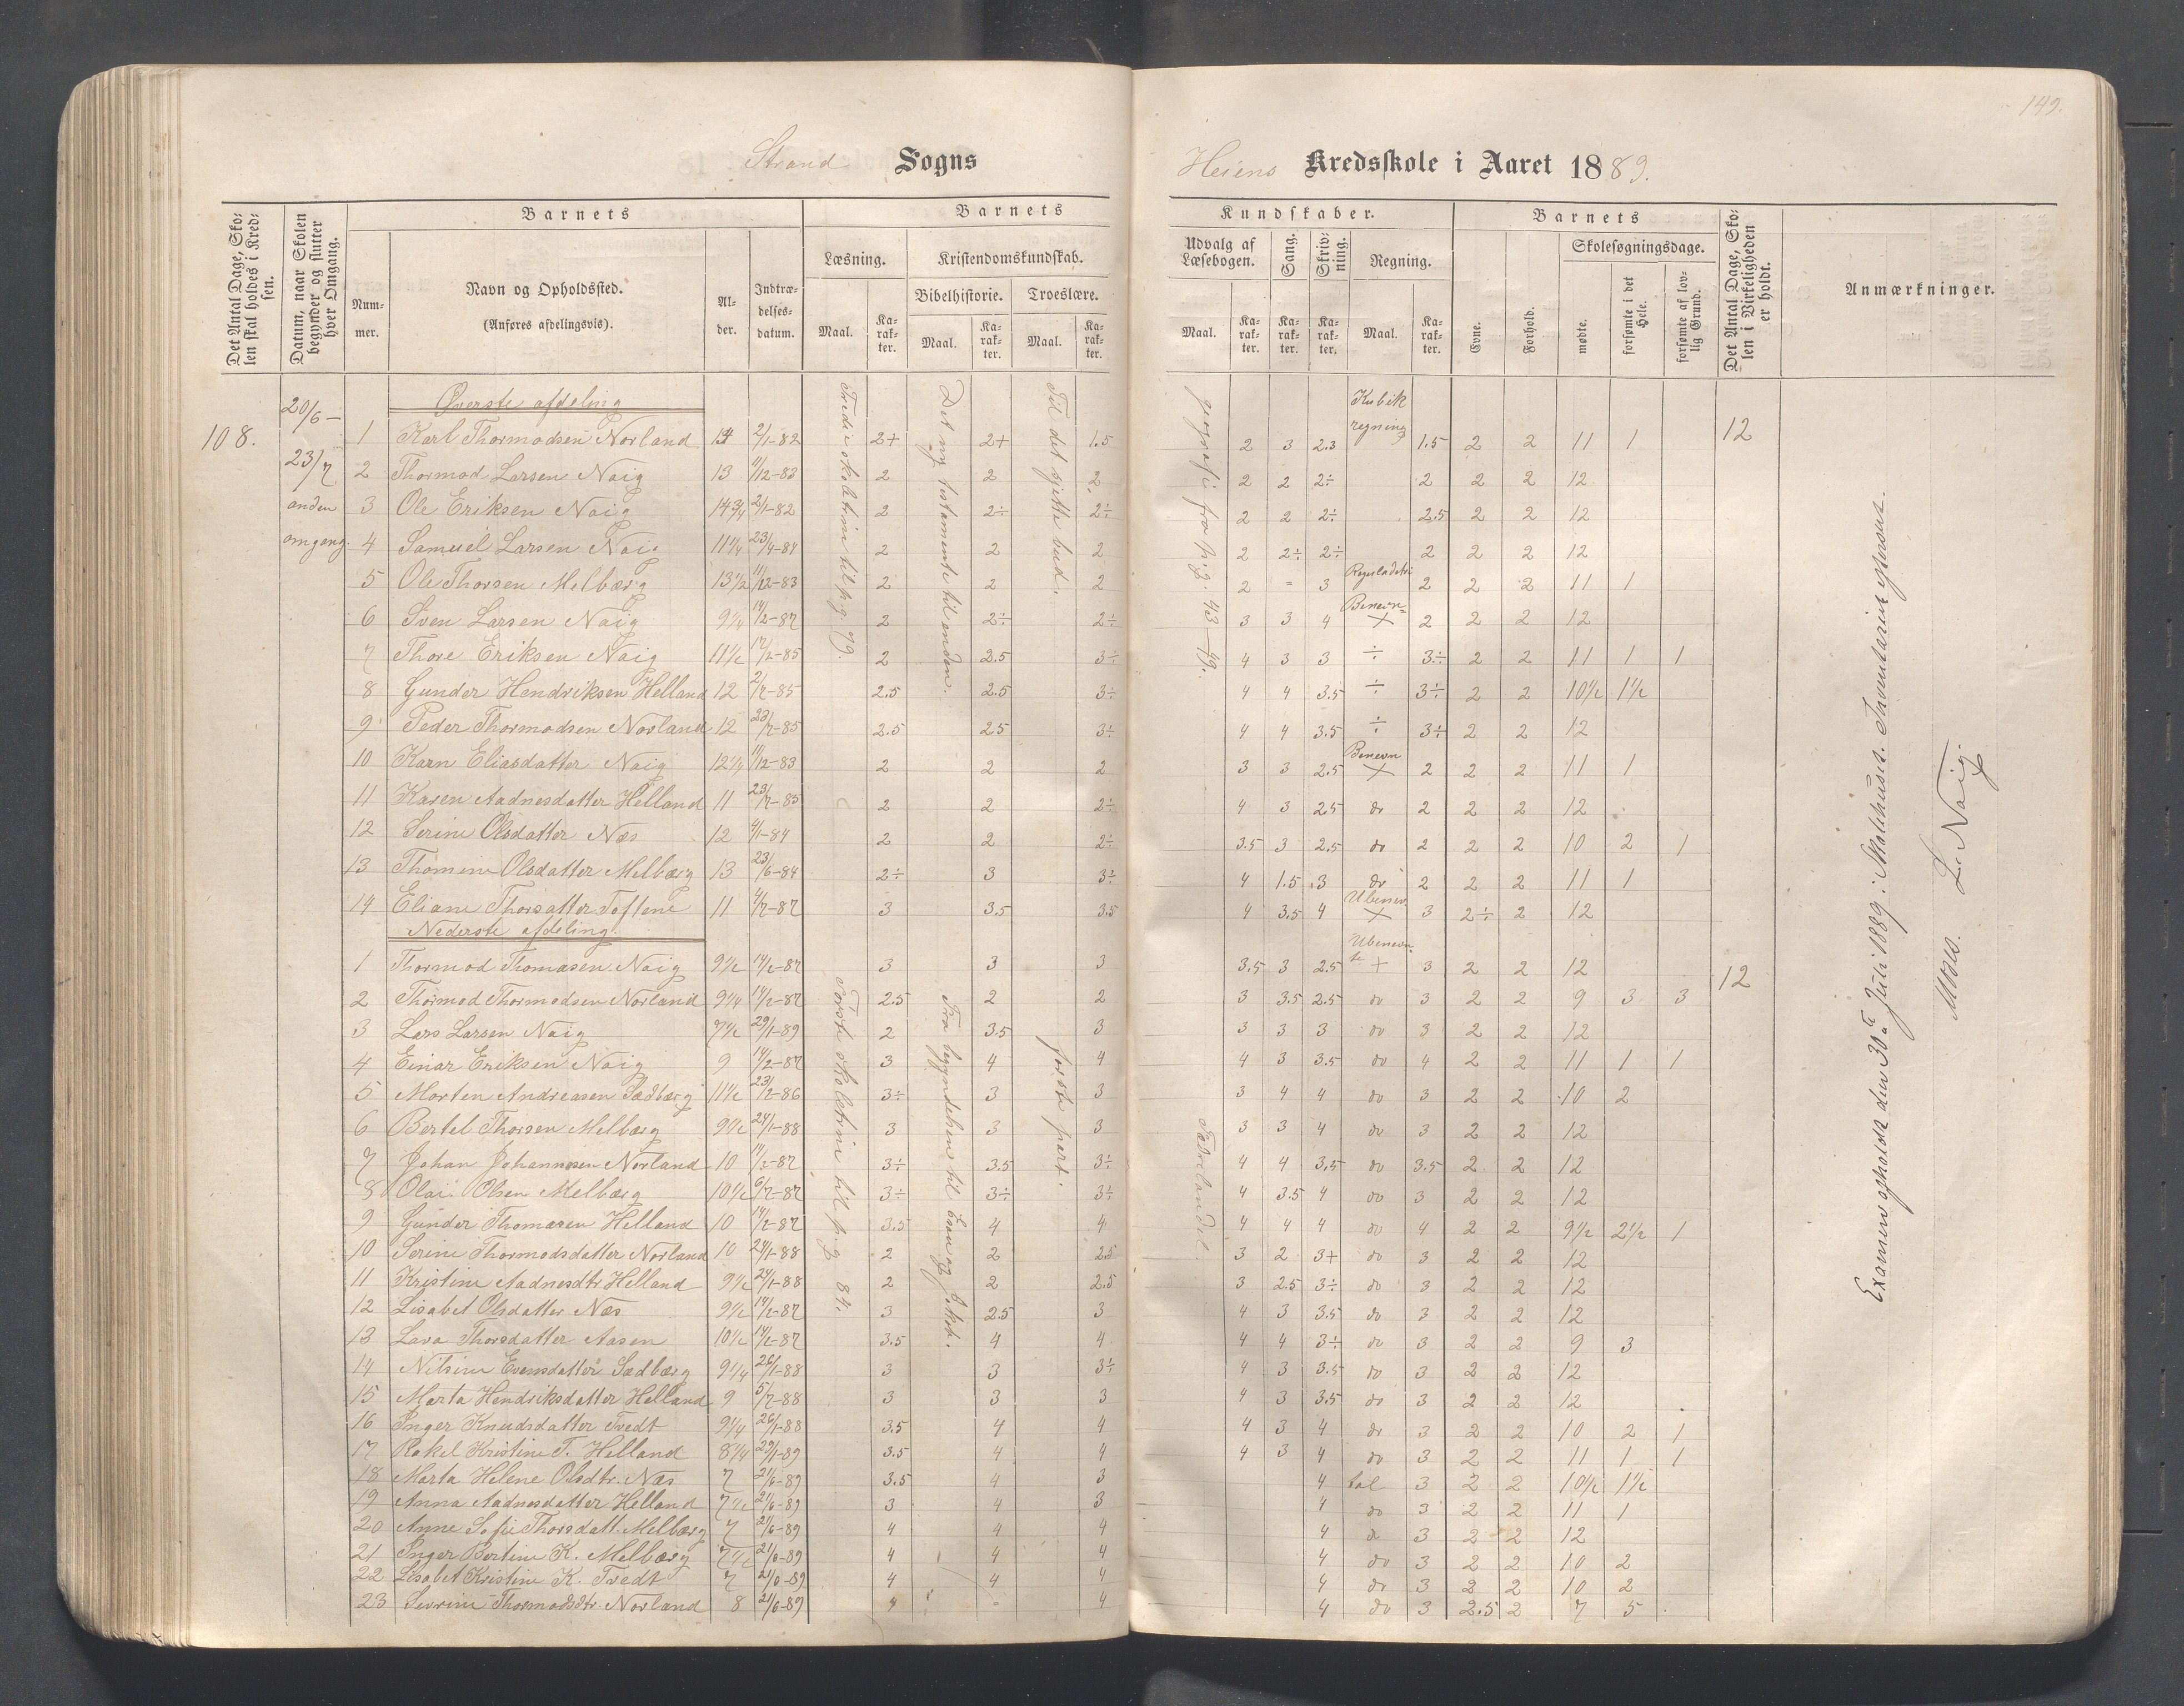 149.
Strand Sogns
Heiens Kredsskole i Aaret 1889.
Det Antal Dage, Skolen skal holdes i Kredsen.
Datum, naar Skolen begynder og slutter hver Omgang.
Barnets
Nummer.
Navn og Opholdssted.
(Anføres afdelingsvis).
Alder.
Indtrædelsesdatum.
Barnets
Læsning.
Maal.
Karakter.
Kristendomskundskab.
Bibelhistorie.
Maal.
Karakter.
Troeslære.
Maal.
Karakter.
Kundskaber.
Udvalg af Læsebogen.
Maal.
Karakter.
Sang.
Karakter.
Skrivning.
Karakter.
Regning.
Maal.
Karakter.
Barnets
Evne.
Forhold.
Skolesøgningsdage.
mødte.
forsømte i det Hele.
forsømte af lovlig Grund.
Det Antal Dage, Skolen i Virkeligheden er holdt.
Anmærkninger.
108.
20/6 –
23/7
anden
omgang.
Øverste afdeling
Tredie skoletrin til pg. 79.
Det ny testamente til enden.
Til det sjette bud.
geografi fra pg. 43–49.
Kubik regning
12
1 Karl Thormodsen Norland 14 2/1-82 2+ 2+ 1.5 2 3 2.3 1.5 2 2 11 1
2 Thormod Larsen Naig 13 11/12-83 2 2 2 2 2 2÷ 2 2 2 12
3 Ole Eriksen Naig 14 3/4 2/1-82 2 2÷ 2÷ 2 2 2÷ 2.5 2 2 12
4 Samuel Larsen Naig 11 1/4 23/4-84 2 2 2 2 2÷ 2÷ 2 2 2 12
5 Ole Thorsen Melbærg 13 1/2 11/12-83 2 2 2 2 = 3 2 2 2 11 1
6 Sven Larsen Naig 9 1/4 14/2-87 2 2÷ 2÷ 3 3 4 Benevn= + 2 2 2 12
7 Thore Eriksen Naig 11 1/2 17/2-85 2 2.5 3÷ 4 3 3 ÷ 3÷ 2 2 11 1 1
8 Gunder Hendriksen Helland 12 2/7-85 2.5 2.5 3÷ 4 4 3.5 ÷ 3÷ 2 2 10½ 1½
9 Peder Thormodsen Norland 12 23/7-85 2.5 2.5 3÷ 4 4 3.5 ÷ 3÷ 2 2 12
10 Karn Eliasdatter Naig 11/12-83 2 2 2 3 3 2.5 Benevn + 2 2 2 11 1
11 Karen Aadnesdatter Helland 11 23/7-85 2 2 2÷ 4 3 2.5 do 2 2 2 12
12 Serine Olsdatter Næs 12 4/1-84 2 2 2÷ 3.5 3 2.5 do 2 2 2 10 2 1
13 Thomine Olsdatter Melbærg 13 23/6-84 2÷ 3 3÷ 4 1.5 3 do 2 2 2 11 1
14 Eliane Thorsatter Toftene 11 4/7-87 3 3.5 3.5 4 3.5 4 Ubenev. + 3 2÷ 2 12
Nederste afdeling.
Første skoletrin til pg 84.
Fra begyndelsen til Esau og Jakob.
første part.
Fædrelandet
12
1 Thormod Thomasen Naig 9½ 14/2-87 3 3 3 3.5 3 2.5 Ubenevn. te + 3 2 2 12
2 Thormod Thormodsen Norland 9¼ 14/2-87 2.5 2 2 3 3.5 2.5 do 3 2 2 9 3 3
3 Lars Larsen Naig 7½ 29/1-89 2 3.5 3 3 3 3 do 3 2 2 12
4 Einar Eriksen Naig 9 14/2-87 3 4 4 4 3 3.5 do 4 2 2 11 1 1
5 Morten Andreasen Sædbærg 11½ 23/2-86 3÷ 3 3 3 4 4 do 3 2 2 10 2
6 Bertel Thorsen Melbærg 9½ 24/1-88 3 3 3 3 3 4 do 3 2 2 12
7 Johan Johannesen Norland 10 14/2-87 3÷ 3.5 3÷ 4 4 3.5 do 3.5 2 2 12
8 Olai Olsen Melbærg 10½ 6/7-87 3÷ 3÷ 3÷ 4 3.5 4 do 3 2 2 12
9 Gunder Thomasen Helland 10 14/2-87 3.5 4 4 4 4 4 do 4 2 2 9½ 2½ 1
10 Serine Thormodsdatter Norland 10 24/1-88 2 2 2.5 3 2 3+ do 3 2 2 12
11 Kristine Aadnesdtr Helland 9½ 24/1-88 2 2 2.5 3 2.5 3÷ do 3 2 2 12
12 Lisabet Olsdatter Næs 9½ 14/2-87 3 2.5 3 4 3 3.5 do 3 2 2 12
13 Lava Thorsdatter Aasen 10½ 14/2-87 3.5 4 4 4 4 3÷ do 3 2 2 9 3
14 Nilsine Evensdatter Sædbærg 9¼ 26/1-88 3 3 3÷ 4 3 3.5 do 3 2 2 12
15 Marta Hendriksdatter Helland 9 5/7-88 3 3 3 4 3 3.5 do 3 2 2 12
16 Inger Knudsdatter Tvedt 9¼ 26/1-88 3.5 4 4 4 3 4 do 3 2 2 10 2 1
17 Rakel Kristine T. Helland 8¼ 29/1-89 3.5 4 4 4 3 4 do 3 2 2 11 1 1
18 Marta Helene Olsdtr. Næs 7 21/6-89 3.5 4 3 4 tal 3 2 2 10½ 1½
19 Anna Aadnesdatter Helland 7½ 21/6-89 3 4 3 4 do 3 2 2 11 1
20 Anne Sofie Thorsdatt. Melbærg 7 21/6-89 4 4 4 4 do 3 2 2 12
21 Inger Bertine K. Melbærg 7½ 21/6-89 4 4 4 4 do 3 2 2 10 2
22 Lisabet Kristine K. Tvedt 7 21/6-89 4 4 4 4 do 3 2 2 10 2
23 Severine Thormodsdtr. Norland 8 21/6-89 4 - 4 4 do 3 2.5 2 7 5
Examen opholdt den 30te Juli 1889 i Skolehuset. Inventariet
L. Naig